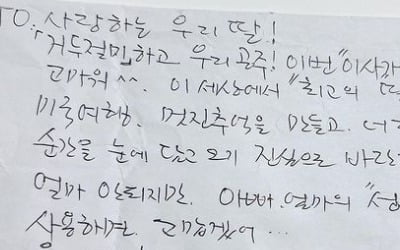 TO. 사랑하는 우리 딸!
거두절미하고 우리 공주! 이번 "이사가
고마워^^. 이 세상에서 "최고의 딸
미국여행. 멋진추억을 만들고.
순간를 눈에 담고 오기 진심으로 바란
얼마 안되지만. 아빠.엄마의 "성
사용해줘. 고맙겠어 ...